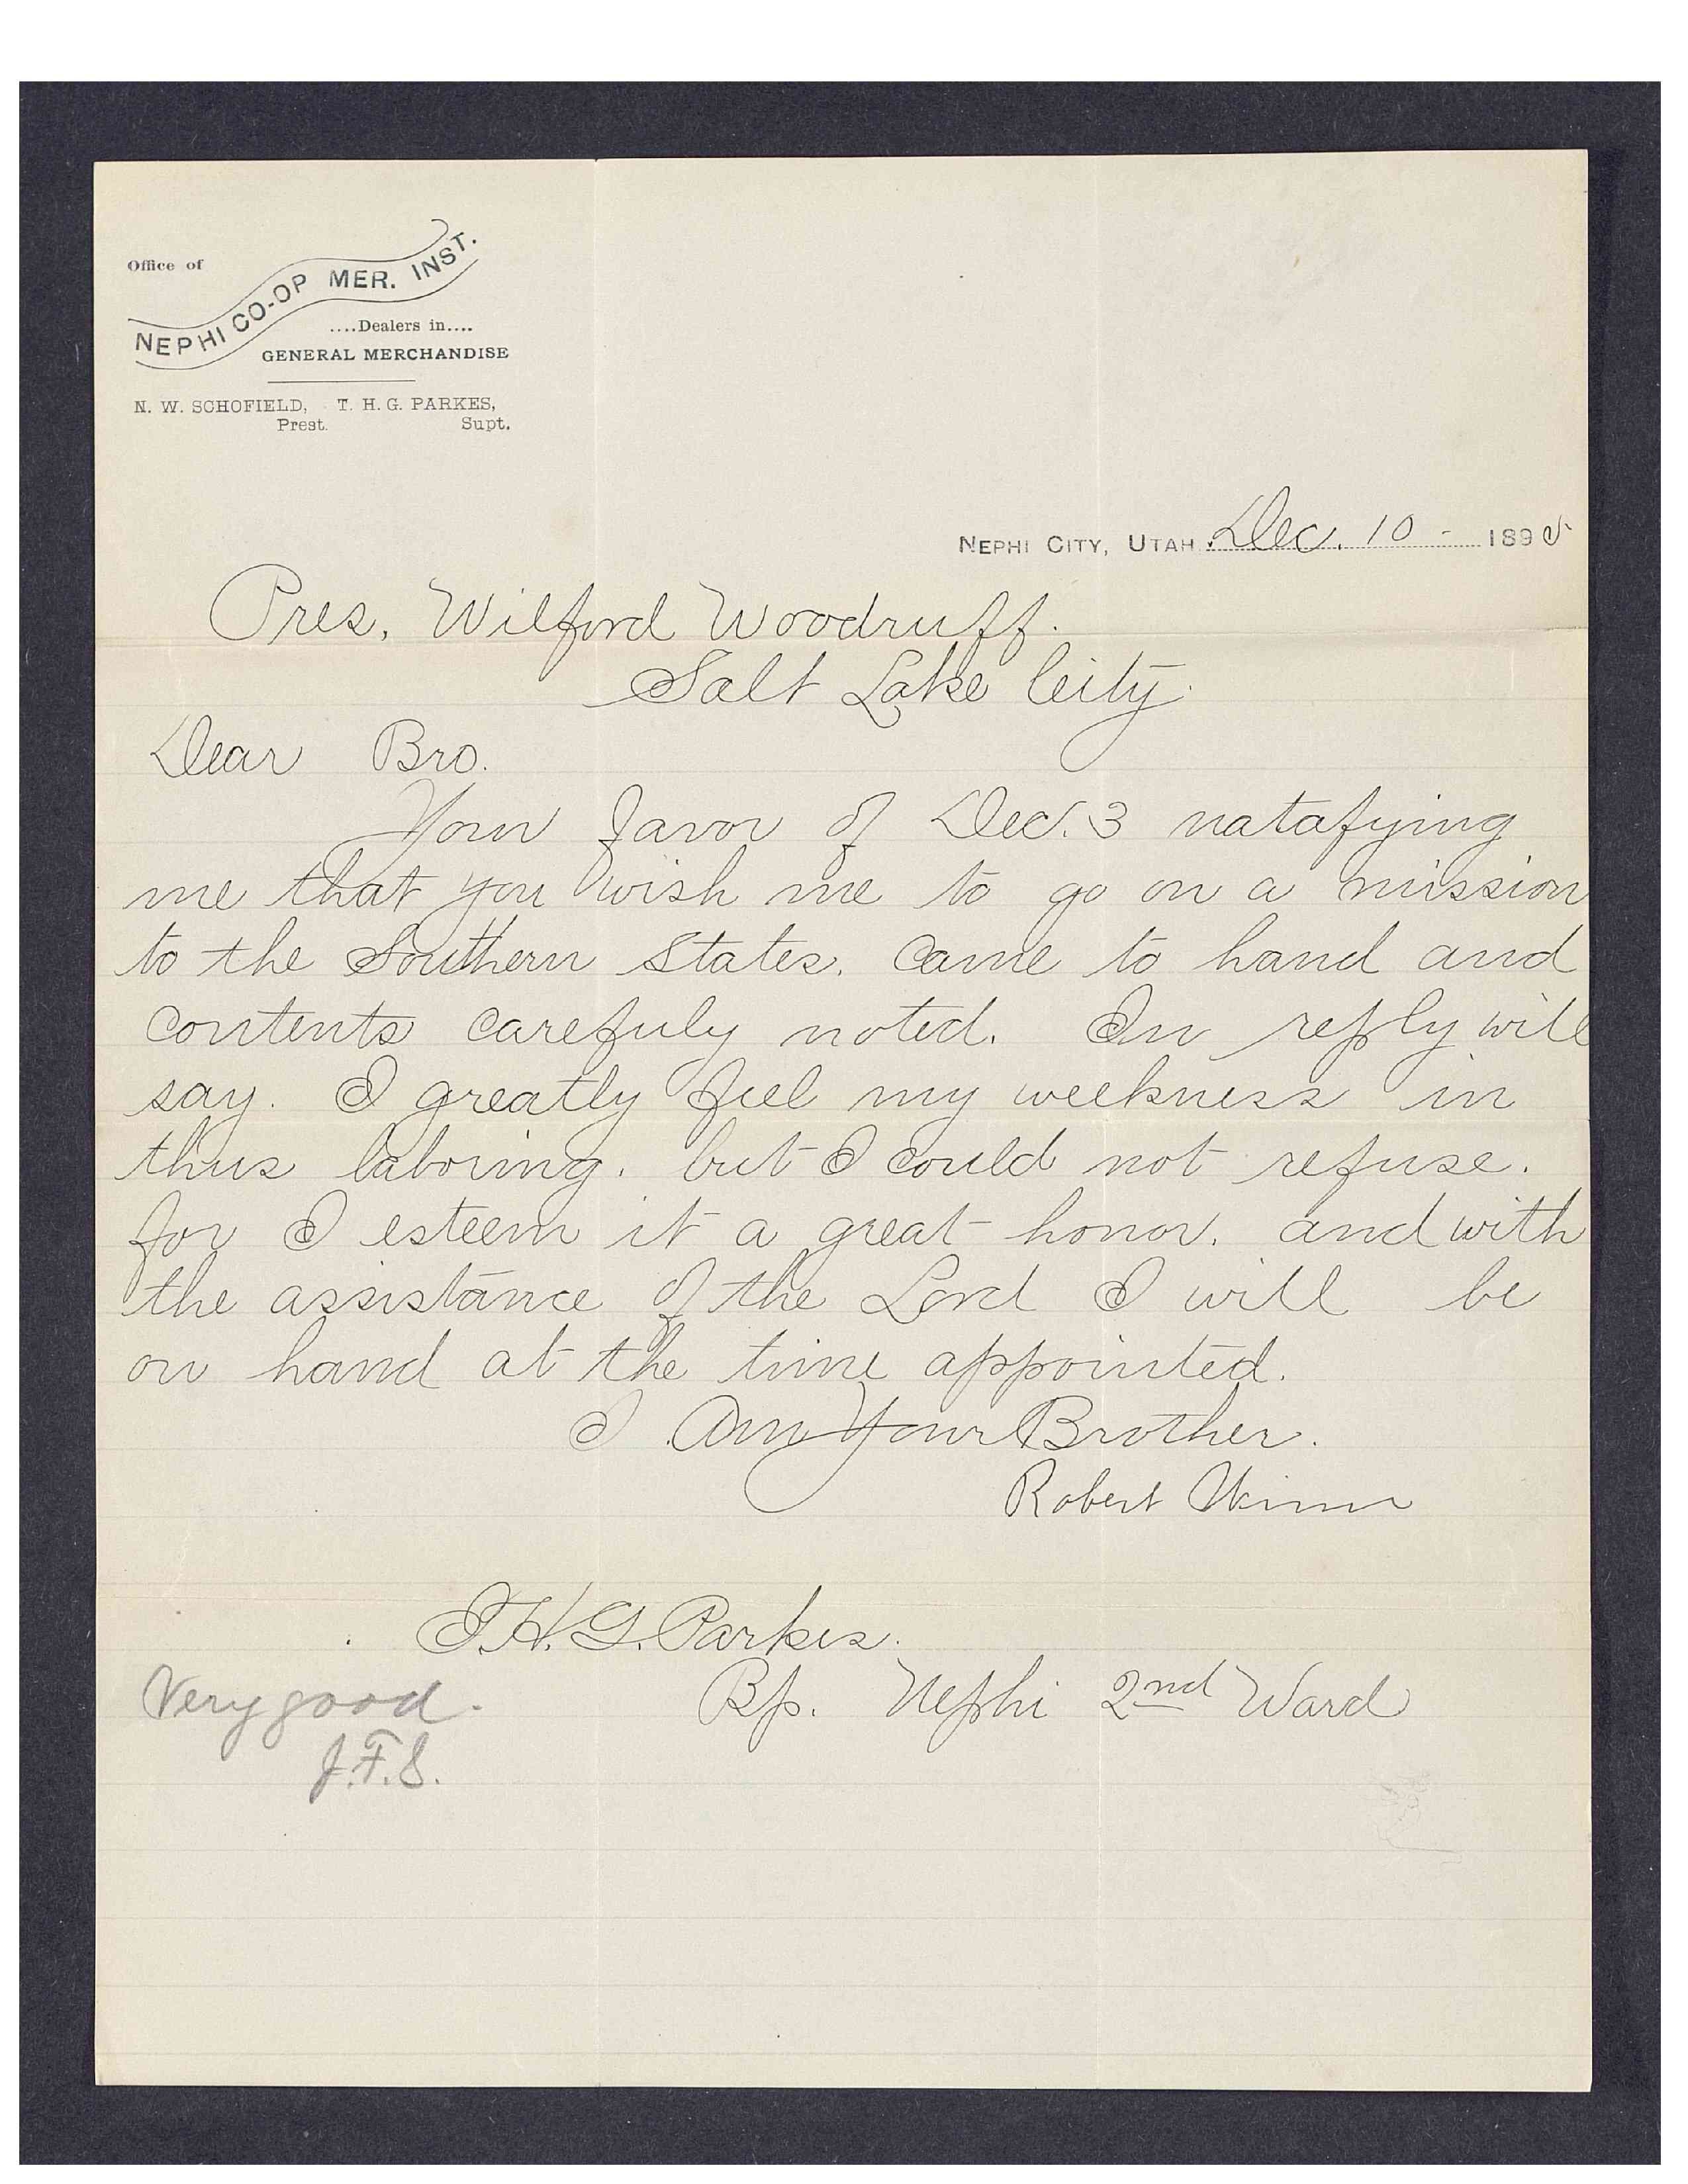 Office of
NEPHI CO-OP MER. INST.
....Dealers in....
GENERAL MERCHANDISE
N. W. SCHOFIELD, T. H. G. PARKES,
Prest. Supt.
NEPHI CITY, UTAH. Dec. 10 - 1895
Pres. Wilford Woodruff.
Salt Lake City.
Dear Bro.
Your favor of Dec. 3 natafying
me that you wish me to go on a mission
to the Southern States. Came to hand and
Contents carefuly noted. In reply will
say. I greatly feel my weekness in
thus laboring. but I could not refuse.
for I esteem it a great honor. and with
the assistance of the Lord I will be
on hand at the time appointed.
I Am Your Brother.
Robert Winn
T.H.G. Parkes.
Bp. Nephi 2nd Ward
Very good.
J.F.S.